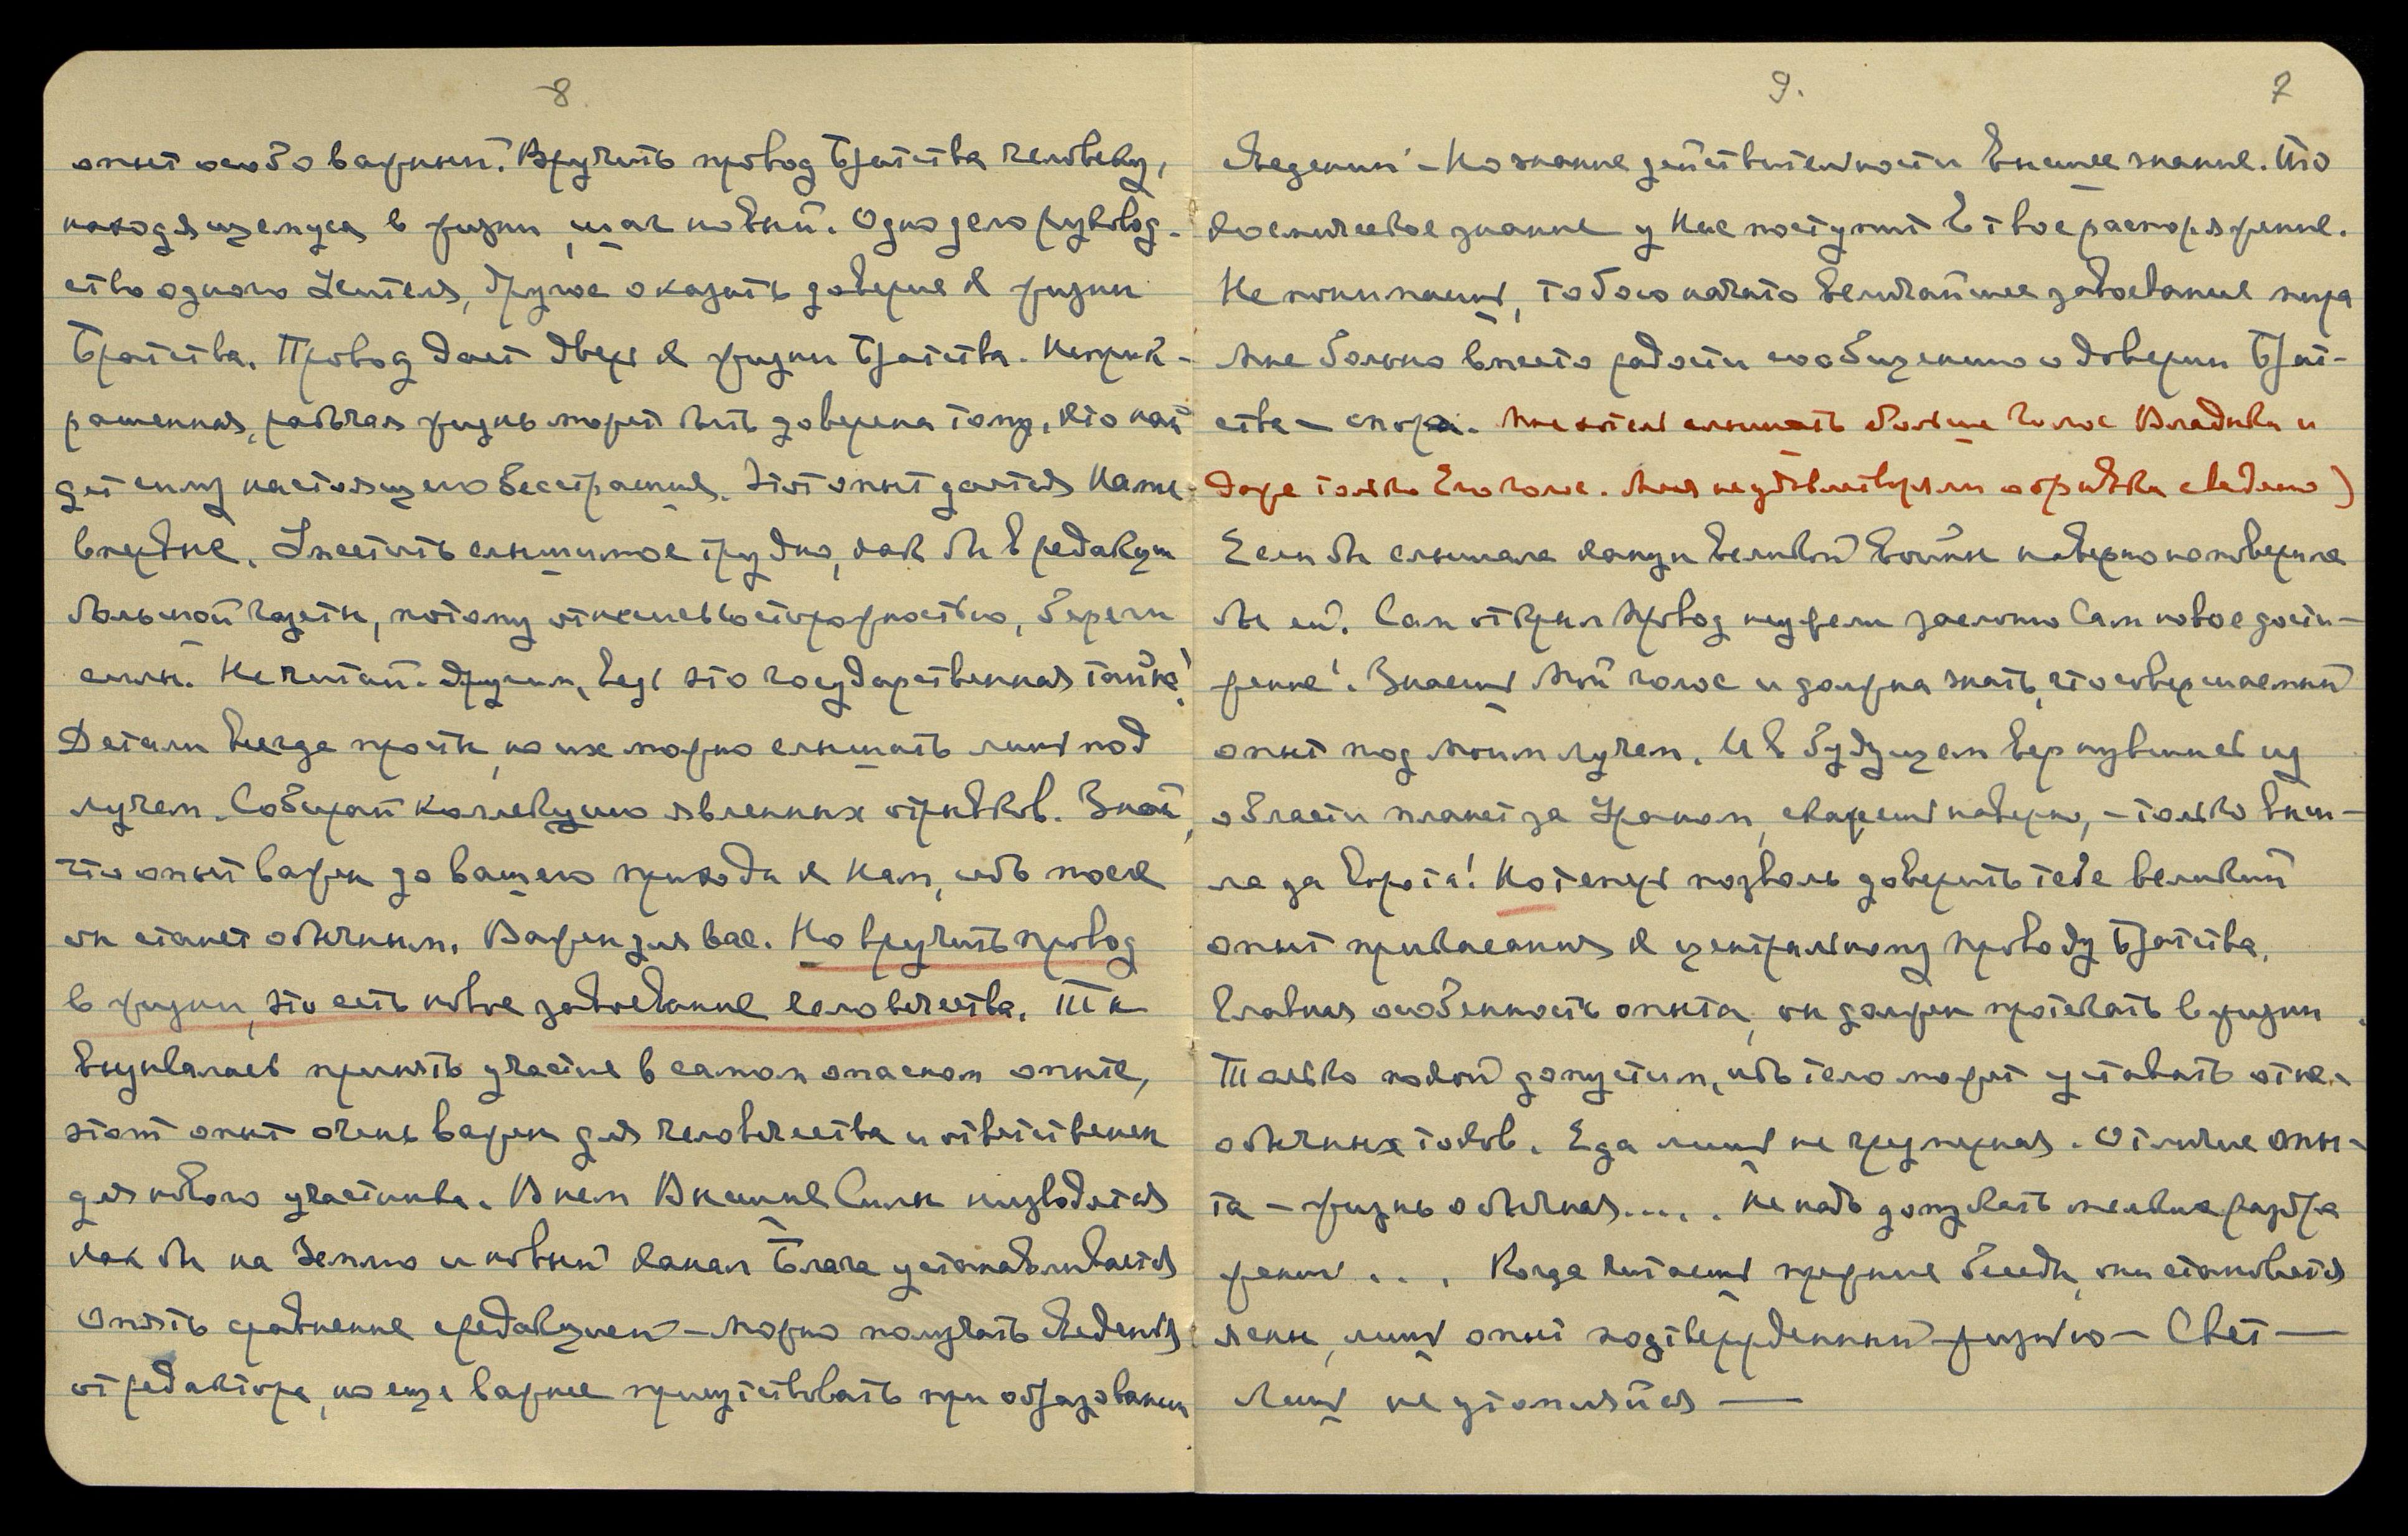 8
опыт особо важный. Вручить провод Братства человеку,
находящемуся в жизни, шаг новый. Одно дело руковод-
ство одного Учителя, другое оказать доверие к жизни
Братства. Провод дает дверь к жизни Братства. Неприк-
рашенная, рабочая жизнь может быть доверена тому, кто най
дет силу настоящего бесстрашия. Этот опыт дается Нами
впервые. Уместить слышимое трудно, как бы в редакции
большой газеты, потому отнесись с осторожностью, береги
силы. Не читай другим, ведь это государственная тайна!
Детали всегда просты, но их можно слышать лишь под
лучем. Собирай коллекцию явленных отрывков. Знай,
что опыт важен до вашего прихода к Нам, ибо после
он станет обычным. Важен для вас. Но вручить провод
в жизни, это есть новое завоевание человечества. Ты
вызвалась принять участие в самом опасном опыте,
этот опыт очень важен для человечества и ответственен
для нового участника. В нем Высшие Силы низводятся
как бы на Землю и новый канал Блага устанавливается
Опять сравнение с редакцией – можно получать сведения
от редактора, но еще важнее присутствовать при образовании
9. 7
сведений – Но знание действительности высшее знание. Это
космическое знание у Нас поступит в твое распоряжение.
Не понимаешь, тобою начато величайшее завоевание мира
Мне больно вместо радости сообщению о доверии Брат-
ства – спор. Мне хотел слышать больше голос Владыки и
даже только Его голос. Меня не удовлетворяли обрывки сведений)
Если бы слышала канун великой войны наверно не поверила
бы ей. Сам открыл провод неужели заслоню Сам новое дости-
жение! Знаешь Мой голос и должна знать, что совершаемый
опыт под Моим лучем. И в будущем вернувшись из
области планет за Ураном, скажешь наверно, – только вы-
ла за ворота! Но теперь позволь доверить тебе великий
опыт прикасания к центральному проводу Братства.
Главная особенность опыта, он должен протекать в жизни.
Только покой допустим, ибо тело может уставать от не-
обычных токов. Еда лишь не чрезмерная. Отличие опы-
та – жизнь обычная..... Не надо допускать мелких раздра
жений . . . Когда читаешь прежние беседы, они становятся
ясны, лишь опыт подтвержденный жизнью – Свет —
Лишь не утомляйся —